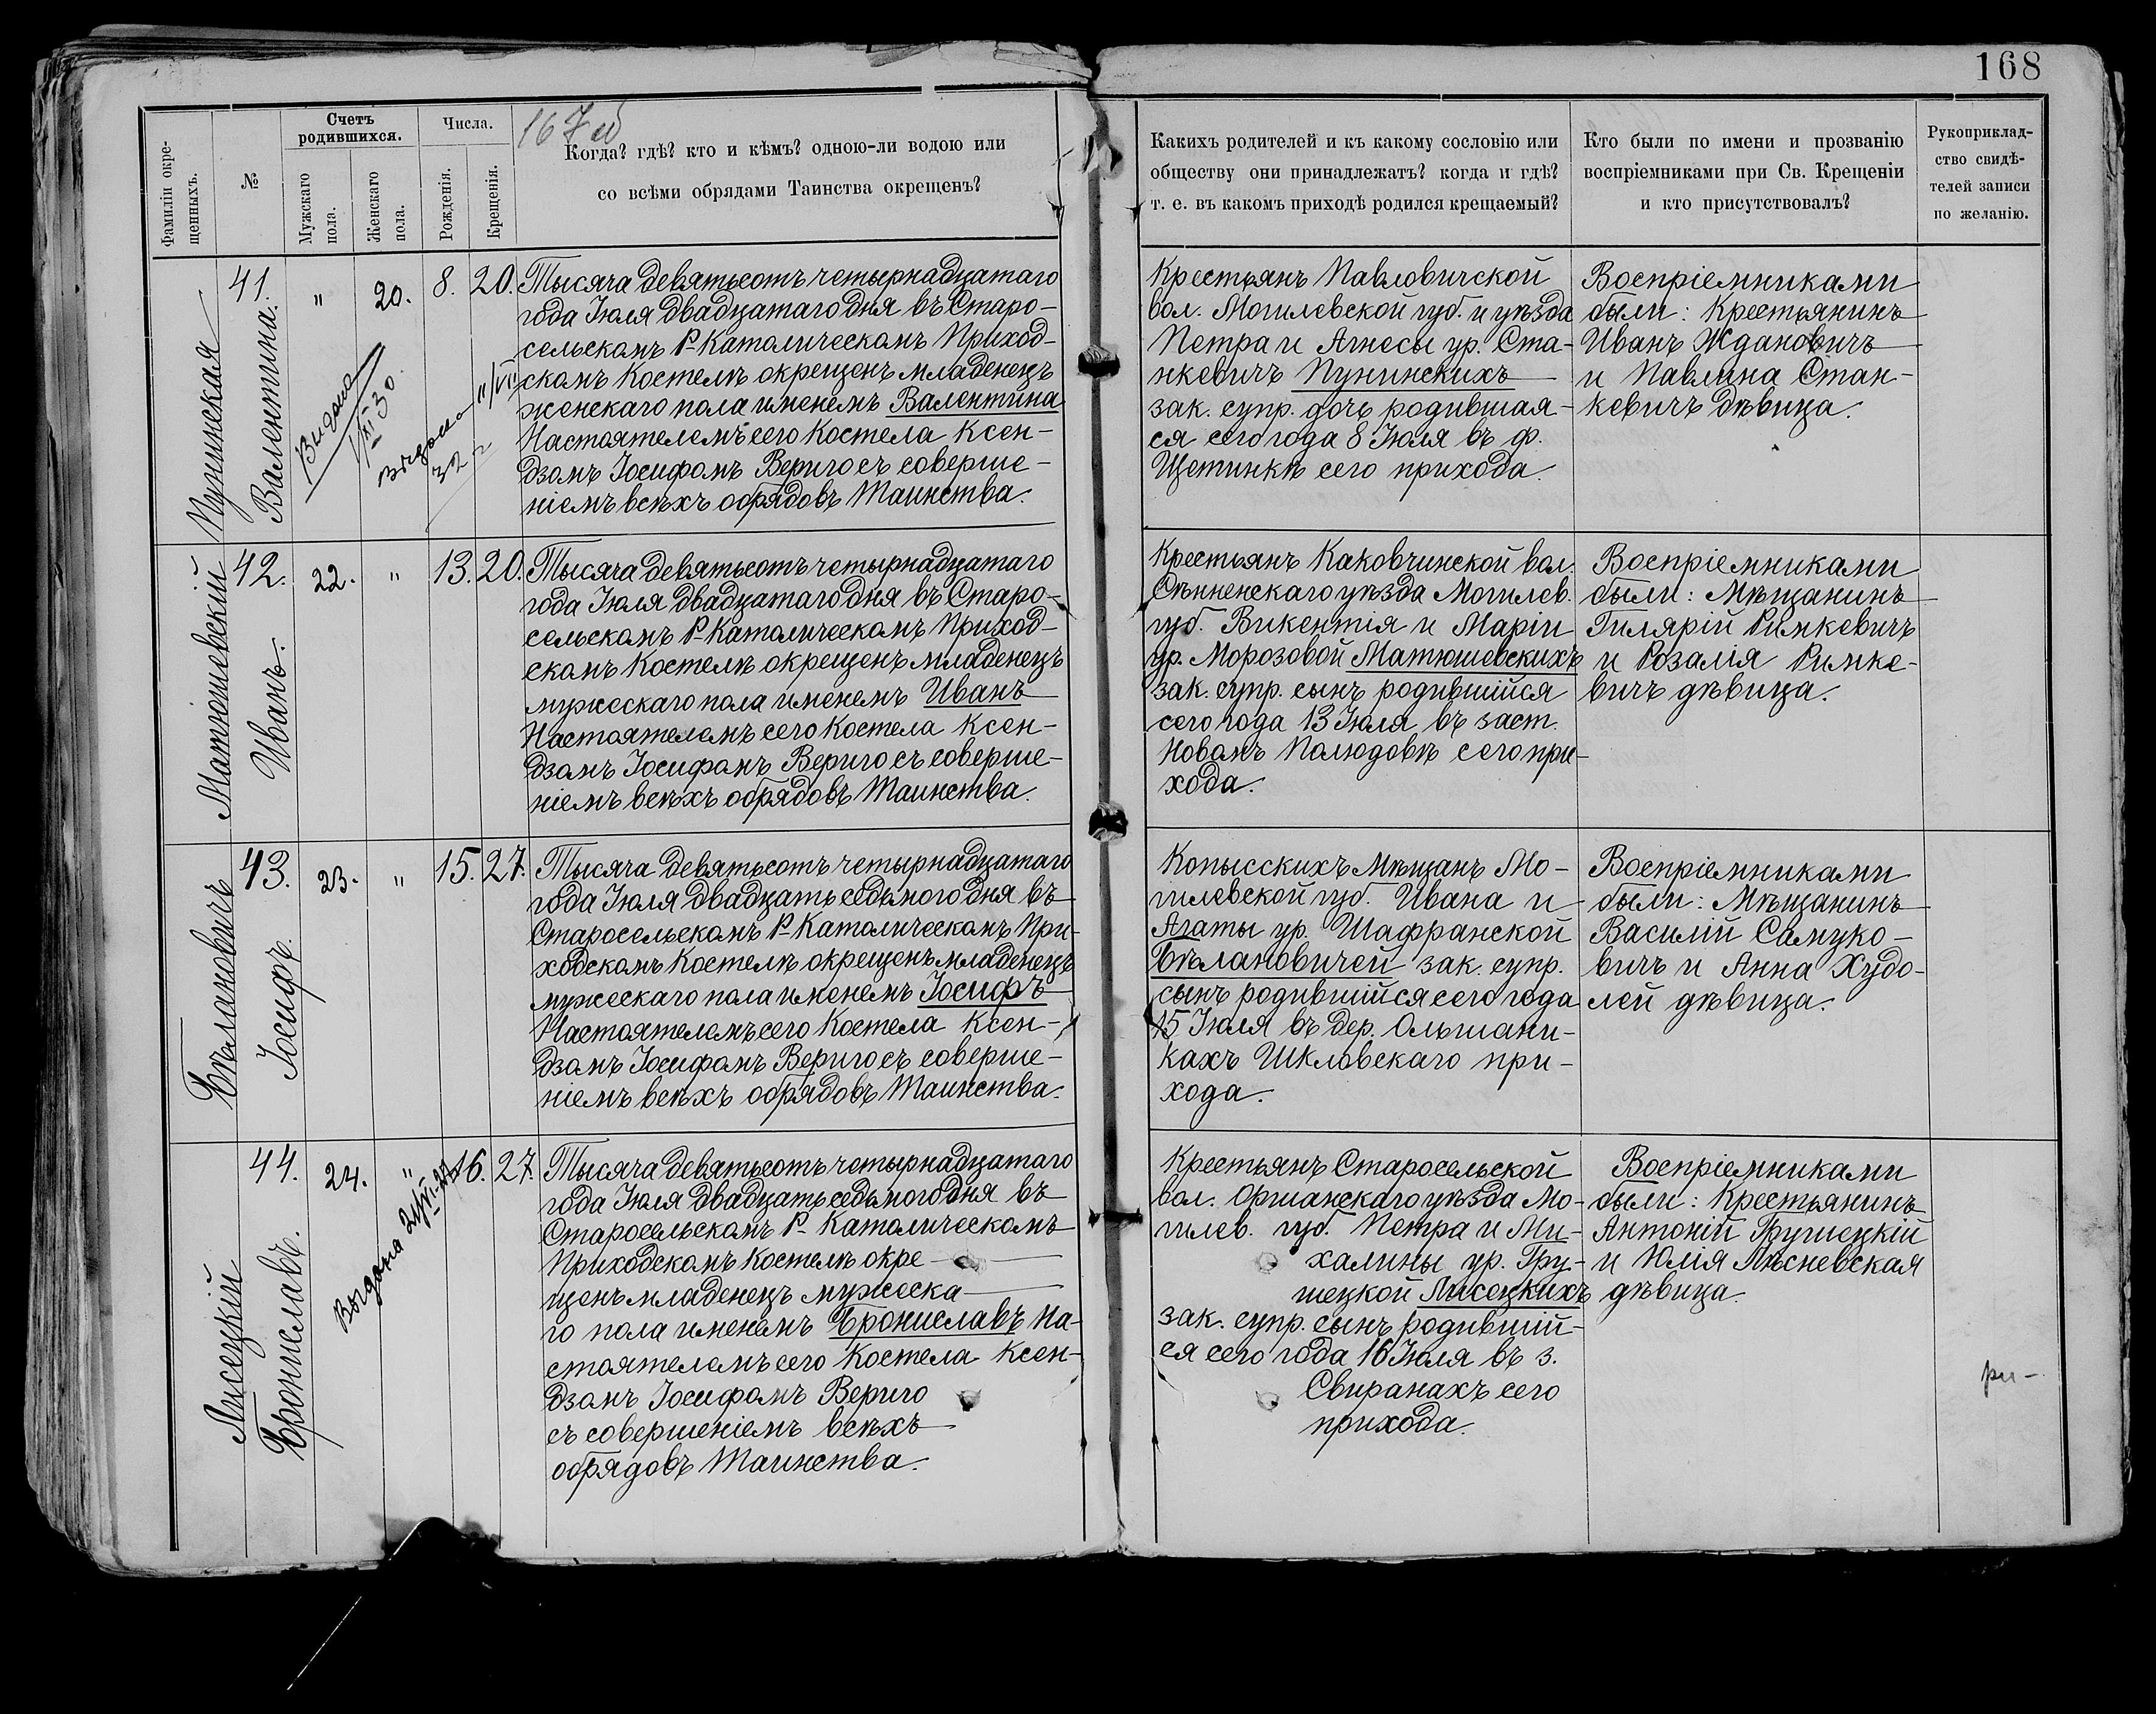 168
Фамиліи окре-
щенныхъ.
№
Счетъ
родившихся.
Мужскаго
пола.
Женскаго
пола.
Числа.
Рожденія.
Крещенія.
Когда? гдѣ? кто и кѣмъ? одною-ли водою или
со всѣми обрядами Таинства окрещенъ?
Какихъ родителей и къ какому сословію или
обществу они принадлежатъ? когда и гдѣ?
т. е. въ какомъ приходѣ родился крещаемый?
Кто были по имени и прозванію
воспріемниками при Св. Крещеніи
и кто присутствовалъ?
Рукоприклад-
ство свидѣ-
телей записи
по желанію.
Пунинская
Валентина.
41.
"
20.
8.
20.
Выдано
Тысяча девятьсотъ четырнадцатаго
года Іюля двадцатаго дня въ Старо-
сельскомъ Р-Католическомъ Приход-
скомъ Костелѣ окрещенъ младенецъ
женскаго пола именемъ Валентина
Настоятелемъ сего Костела Ксен-
дзомъ Іосифомъ Вериго съ соверше-
ніемъ всѣхъ обрядовъ Таинства.
Крестьянъ Павловичской
вол. Могилевской губ. и уѣзда
Петра и Агнесы ур. Ста-
нкевичъ Пунинскихъ
зак. супр. дочь родившая-
ся сего года 8 Іюля въ ф.
Щетинкѣ сего прихода.
Воспріемниками
были: Крестьянинъ
Иванъ Ждановичъ
и Павлина Стан-
кевичъ дѣвица.
Матюшевскій
Иванъ.
42.
22.
"
13.
20.
Тысяча девятьсотъ четырнадцатаго
года Іюля двадцатаго дня въ Старо-
сельскомъ Р-Католическомъ Приход-
скомъ Костелѣ окрещенъ младенецъ
мужескаго пола именемъ Иванъ
Настоятелемъ сего Костела Ксен-
дзомъ Іосифомъ Вериго съ соверше-
ніемъ всѣхъ обрядовъ Таинства.
Крестьянъ Каковчинской вол.
Сѣнненскаго уѣзда Могилев.
губ. Викентія и Маріи
ур. Морозовой Матюшевскихъ
зак. супр. сынъ родившійся
сего года 13 Іюля въ заст.
Новомъ Полюдовѣ сего при-
хода.
Воспріемниками
были: Мѣщанинъ
Гилярій Римкевичъ
и Розалія Римке-
вичъ дѣвица.
Бѣлановичъ
Іосифъ.
43.
23.
"
15.
27.
Тысяча девятьсотъ четырнадцатаго
года Іюля двадцать седьмого дня въ
Старосельскомъ Р-Католическомъ При-
ходскомъ Костелѣ окрещенъ младенецъ
мужескаго пола именемъ Іосифъ
Настоятелемъ сего Костела Ксен-
дзомъ Іосифомъ Вериго съ соверше-
ніемъ всѣхъ обрядовъ Таинства.
Копысскихъ мѣщанъ Мо-
гилевской губ. Ивана и
Агаты ур. Шафранской
Бѣлановичей зак. супр.
сынъ родившійся сего года
15 Іюля въ дер. Ольшани-
кахъ Шкловскаго при-
хода.
Воспріемниками
были: Мѣщанинъ
Василій Самуко-
вичъ и Анна Худо-
лей дѣвица.
Лисецкій
Брониславъ.
44.
24.
"
16.
27.
Выдана
Тысяча девятьсотъ четырнадцатаго
года Іюля двадцать седьмого дня въ
Старосельскомъ Р-Католическомъ
Приходскомъ Костелѣ окре-
щенъ младенецъ мужеска-
го пола именемъ Брониславъ На-
стоятелемъ сего Костела Ксен-
дзомъ Іосифомъ Вериго
съ совершеніемъ всѣхъ
обрядовъ Таинства.
Крестьянъ Старосельской
вол. Оршанскаго уѣзда Мо-
гилев. губ. Петра и Ми-
халины ур. Гру-
шецкой Лисецкихъ
зак. супр. сынъ родившій-
ся сего года 16 Іюля въ з.
Свиранахъ сего
прихода.
Воспріемниками
были: Крестьянинъ
Антоній Грушецкій
и Юлія Лѣсневская
дѣвица.